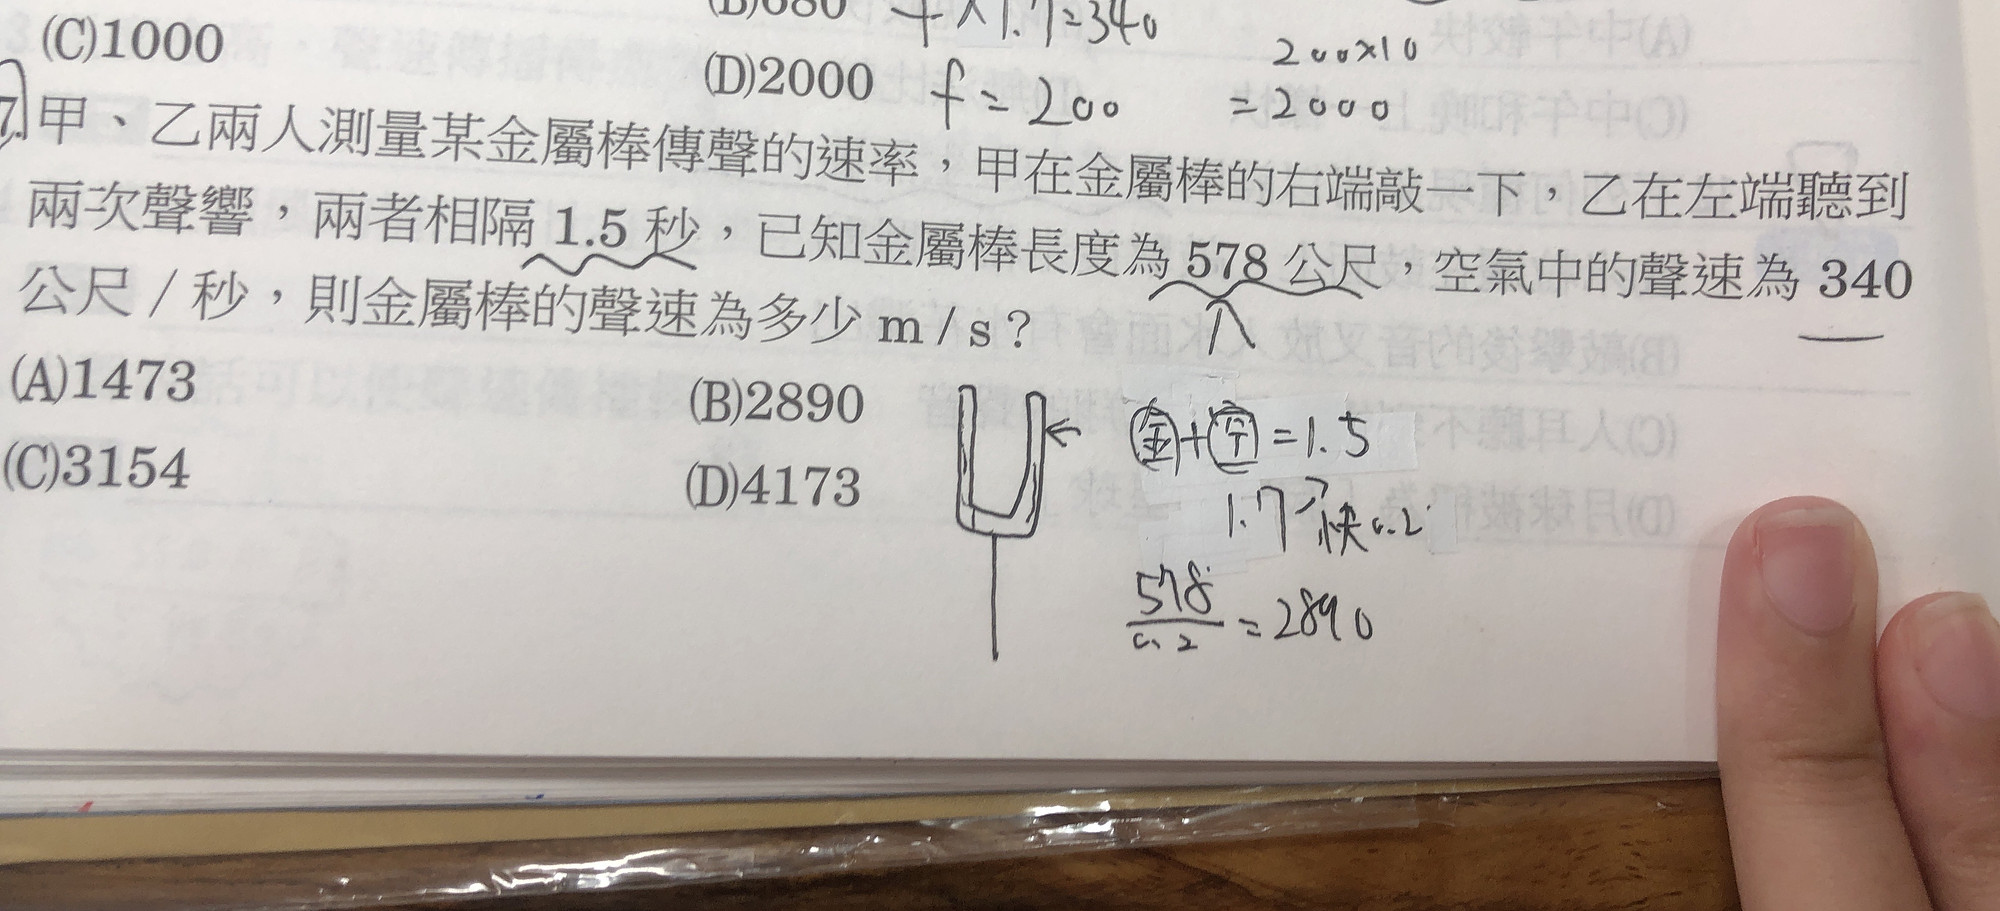 (C)1000
(D)2000
×1.7=340
f=200
200×10
=2000
7.甲、乙兩人測量某金屬棒傳聲的速率，甲在金屬棒的右端敲一下，乙在左端聽到
兩次聲響，兩者相隔 1.5 秒，已知金屬棒長度為 578 公尺，空氣中的聲速為 340
公尺 / 秒，則金屬棒的聲速為多少 m / s？
(A)1473
(B)2890
(C)3154
(D)4173
金+空=1.5
1.7 快0.2
578
0.2
=2890